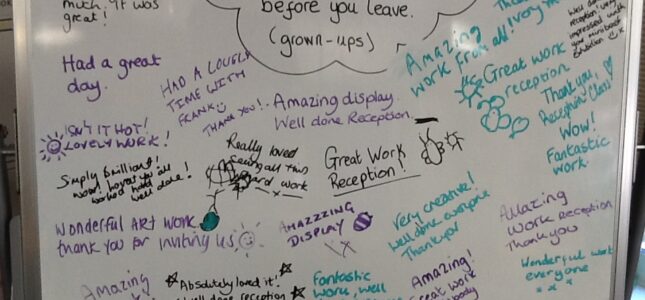 much. It was
great!
before you leave.
(grown-ups)
Had a great
day.
HAD A LOVELY
TIME WITH
FRANK
THANK YOU!
Amazing display
Well done Reception.
Amazing
work from all!
Great work
reception
very
much
Well done
reception
impressed
with
Thank you,
Reception Class!
Wow!
Fantastic
work.
ISN'T IT HOT!
LOVELY WORK!
Simply brilliant!
worked
well done!
Really loved
seeing all this
hard work
Great Work
Reception!
WONDERFUL ART WORK
thank you for inviting us
AMAZZZING
DISPLAY
Very creative!
Well done everyone
Thankyou
Amazing
Work Reception
Thankyou
Wonderful work
everyone
x x x
Amazing
Absolutely loved it!
Well done reception
Fantastic
work, well
Amazing!
Great work